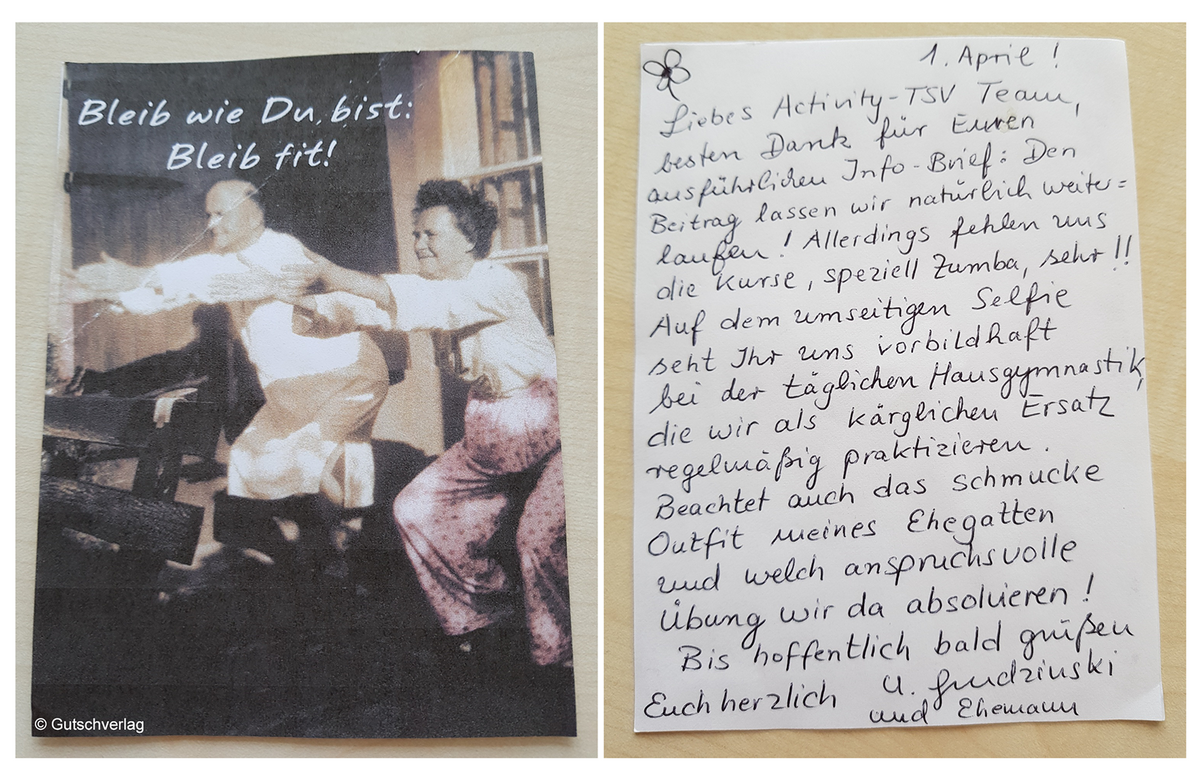 Bleib wie Du bist:
Bleib fit!
© Gutschverlag
1. April !
Liebes Activity-TSV Team,
besten Dank für Euren
ausführlichen Info-Brief: Den
Beitrag lassen wir natürlich weiter=
laufen! Allerdings fehlen uns
die Kurse, speziell Zumba, sehr!!
Auf dem umseitigen Selfie
seht Ihr uns vorbildhaft
bei der täglichen Hausgymnastik,
die wir als kärglichen Ersatz
regelmäßig praktizieren.
Beachtet auch das schmucke
Outfit meines Ehegatten
und welch anspruchsvolle
Übung wir da absolvieren!
Bis hoffentlich bald grüßen
Euch herzlich U. Grudzinski
und Ehemann